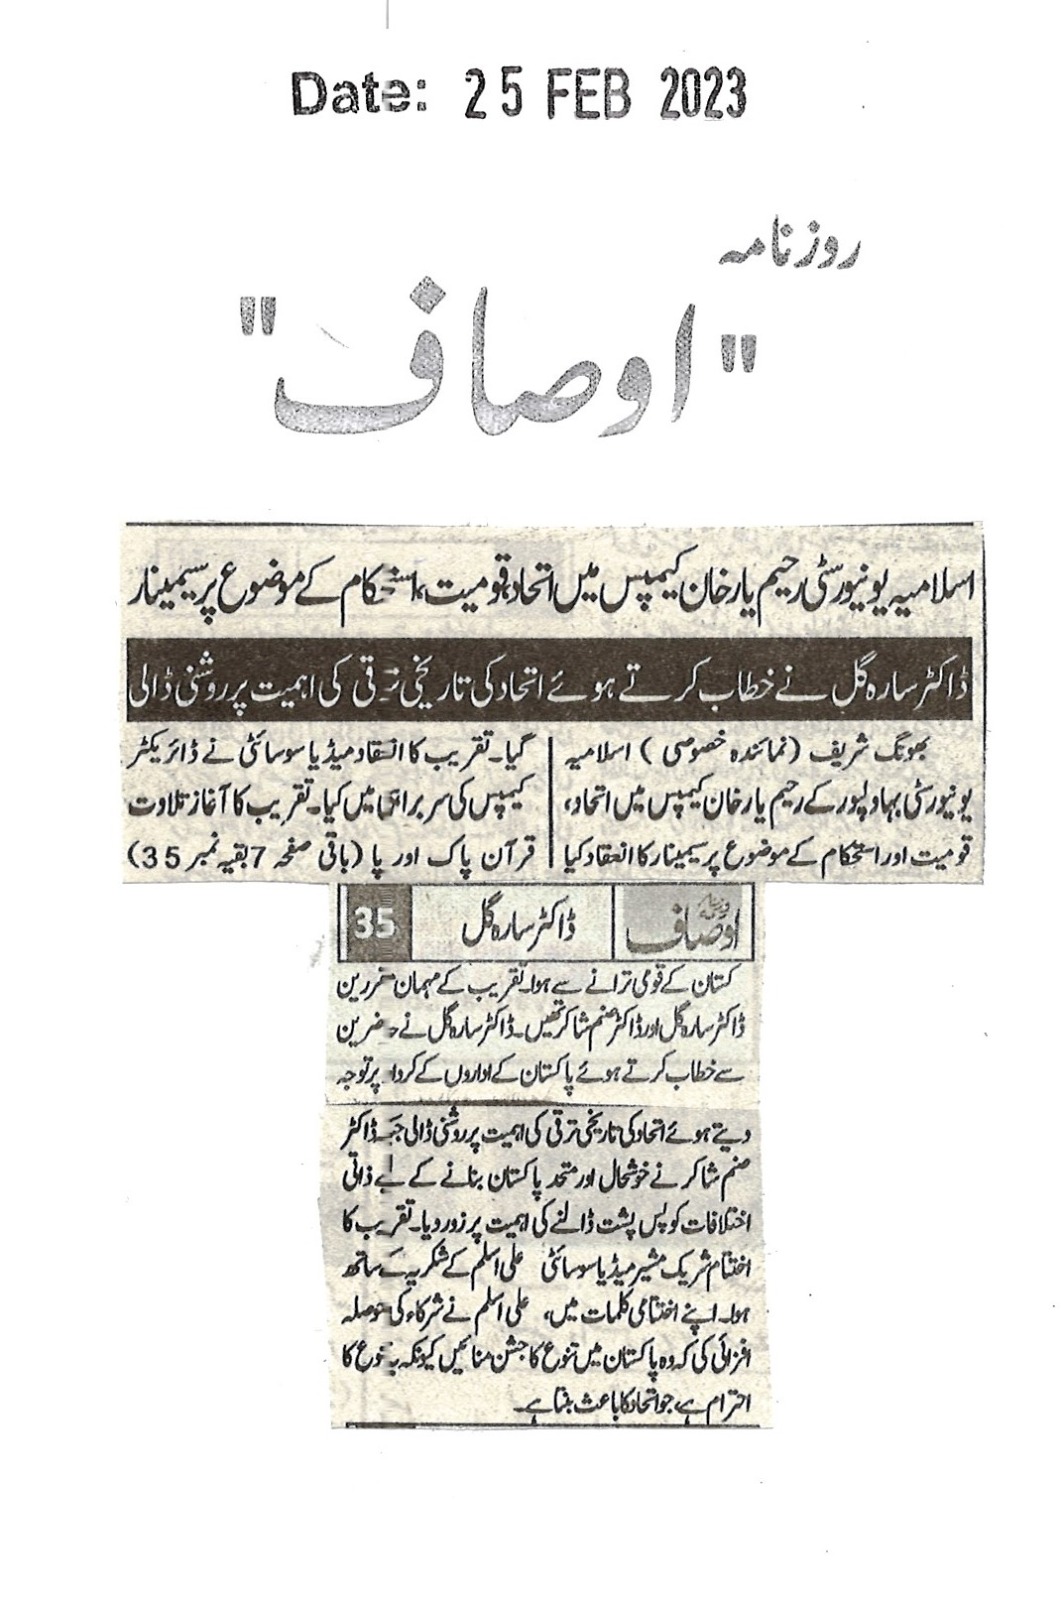 Date: 25 FEB 2023
روزنامہ
"اوصاف"
اسلامیہ یونیورسٹی رحیم یارخان کیمپس میں اتحاد،قومیت،استحکام کے موضوع پر سیمینار
ڈاکٹر سارہ گل نے خطاب کرتے ہوئے اتحاد کی تاریخی ترقی کی اہمیت پر روشنی ڈالی
بھونگ شریف (نمائندہ خصوصی) اسلامیہ
یونیورسٹی بہاولپور کے رحیم یارخان کیمپس میں اتحاد،
قومیت اور استحکام کے موضوع پر سیمینار کا انعقاد کیا
گیا۔ تقریب کا انعقاد میڈیا سوسائٹی نے ڈائریکٹر
کیمپس کی سربراہی میں کیا۔ تقریب کا آغاز تلاوت
قرآن پاک اور پا (باقی صفحہ 7 بقیہ نمبر 35)
اوصاف
ڈاکٹر سارہ گل
35
کستان کے قومی ترانے سے ہوا۔ تقریب کے مہمان مقررین
ڈاکٹر سارہ گل اور ڈاکٹر صنم شاکر تھیں۔ ڈاکٹر سارہ گل نے حاضرین
سے خطاب کرتے ہوئے پاکستان کے اداروں کے کردار پر توجہ
دیتے ہوئے اتحاد کی تاریخی ترقی کی اہمیت پر روشنی ڈالی جبکہ ڈاکٹر
صنم شاکر نے خوشحال اور متحد پاکستان بنانے کے لیے ذاتی
اختلافات کو پس پشت ڈالنے کی اہمیت پر زور دیا۔ تقریب کا
اختتام شریک مشیر میڈیا سوسائٹی علی اسلم کے شکریہ کے ساتھ
ہوا۔ اپنے اختتامی کلمات میں، علی اسلم نے شرکاء کی حوصلہ
افزائی کی کہ وہ پاکستان میں تنوع کا جشن منائیں کیونکہ یہ تنوع کا
احترام ہے، جو اتحاد کا باعث بنتا ہے۔